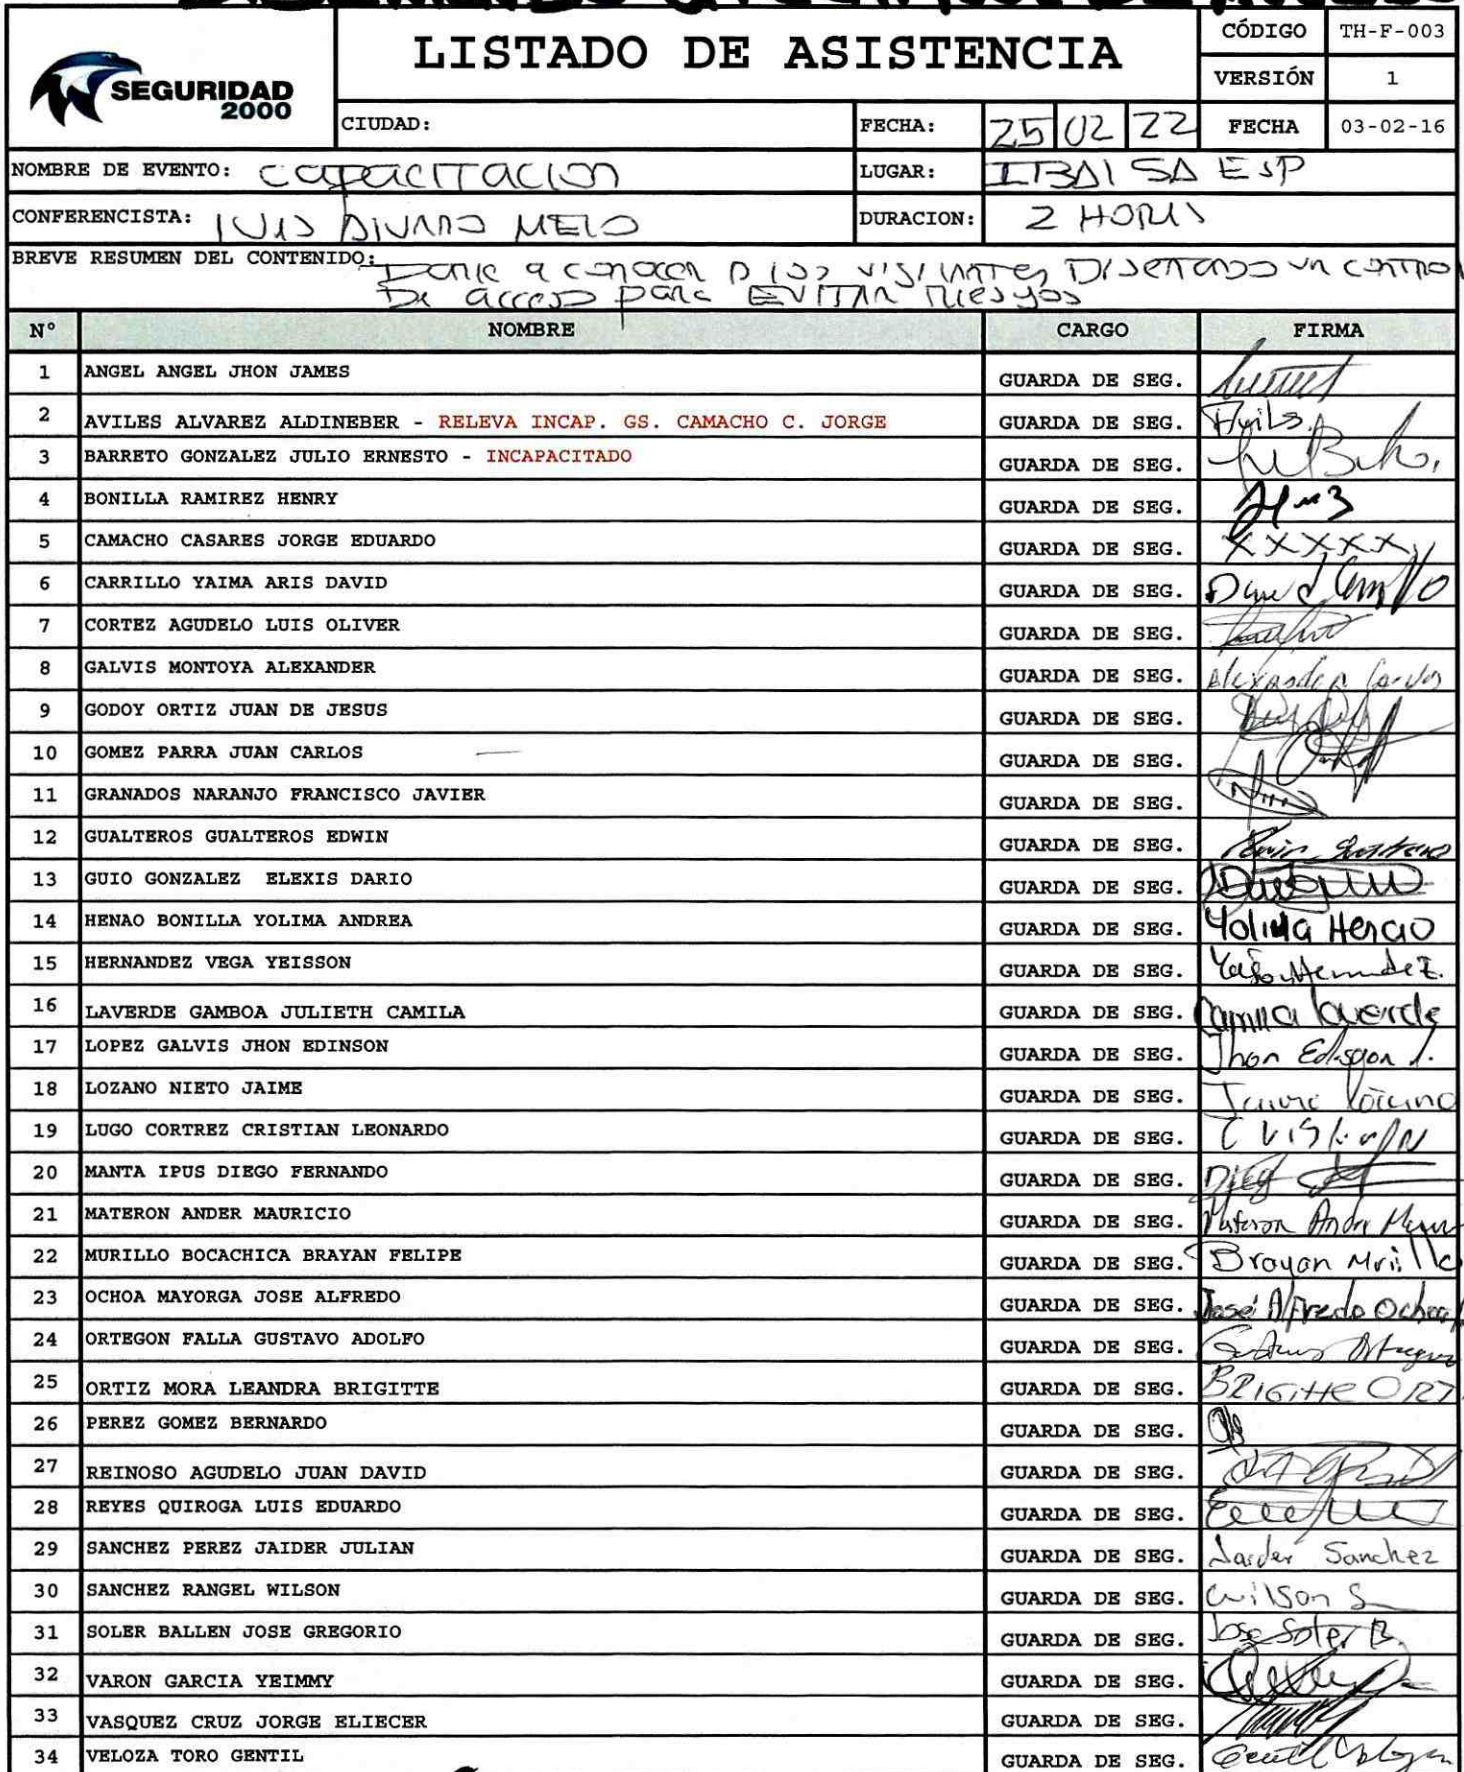 LISTADO DE ASISTENCIA
CÓDIGO TH-F-003
VERSIÓN 1
SEGURIDAD 2000
CIUDAD: FECHA: 25 02 22 FECHA 03-02-16
NOMBRE DE EVENTO: capacitacion LUGAR: IBAL SA ESP
CONFERENCISTA: LUIS ALVARO MELO DURACION: 2 HORAS
BREVE RESUMEN DEL CONTENIDO: Darle a conocer a los visitantes Diseñando un control
De acceso para EVITAR riesgos
N° NOMBRE CARGO FIRMA
1 ANGEL ANGEL JHON JAMES GUARDA DE SEG.
2 AVILES ALVAREZ ALDINEBER - RELEVA INCAP. GS. CAMACHO C. JORGE GUARDA DE SEG. Aviles
3 BARRETO GONZALEZ JULIO ERNESTO - INCAPACITADO GUARDA DE SEG.
4 BONILLA RAMIREZ HENRY GUARDA DE SEG.
5 CAMACHO CASARES JORGE EDUARDO GUARDA DE SEG. XXXXX
6 CARRILLO YAIMA ARIS DAVID GUARDA DE SEG. David Carrillo
7 CORTEZ AGUDELO LUIS OLIVER GUARDA DE SEG.
8 GALVIS MONTOYA ALEXANDER GUARDA DE SEG. Alexander Galvis
9 GODOY ORTIZ JUAN DE JESUS GUARDA DE SEG.
10 GOMEZ PARRA JUAN CARLOS GUARDA DE SEG.
11 GRANADOS NARANJO FRANCISCO JAVIER GUARDA DE SEG.
12 GUALTEROS GUALTEROS EDWIN GUARDA DE SEG.
13 GUIO GONZALEZ ELEXIS DARIO GUARDA DE SEG.
14 HENAO BONILLA YOLIMA ANDREA GUARDA DE SEG. Yolima Henao
15 HERNANDEZ VEGA YEISSON GUARDA DE SEG. Hernandez.
16 LAVERDE GAMBOA JULIETH CAMILA GUARDA DE SEG. Camila Laverde
17 LOPEZ GALVIS JHON EDINSON GUARDA DE SEG. Jhon Edisson l.
18 LOZANO NIETO JAIME GUARDA DE SEG. Jaime Lozano
19 LUGO CORTREZ CRISTIAN LEONARDO GUARDA DE SEG.
20 MANTA IPUS DIEGO FERNANDO GUARDA DE SEG. Diego
21 MATERON ANDER MAURICIO GUARDA DE SEG. Materon Ander
22 MURILLO BOCACHICA BRAYAN FELIPE GUARDA DE SEG. Brayan Murillo
23 OCHOA MAYORGA JOSE ALFREDO GUARDA DE SEG. José Alfredo Ochoa
24 ORTEGON FALLA GUSTAVO ADOLFO GUARDA DE SEG. Gustavo Ortegon
25 ORTIZ MORA LEANDRA BRIGITTE GUARDA DE SEG. BRIGITTE ORT
26 PEREZ GOMEZ BERNARDO GUARDA DE SEG.
27 REINOSO AGUDELO JUAN DAVID GUARDA DE SEG.
28 REYES QUIROGA LUIS EDUARDO GUARDA DE SEG.
29 SANCHEZ PEREZ JAIDER JULIAN GUARDA DE SEG. Jaider Sanchez
30 SANCHEZ RANGEL WILSON GUARDA DE SEG. Wilson S
31 SOLER BALLEN JOSE GREGORIO GUARDA DE SEG. Jose Soler B.
32 VARON GARCIA YEIMMY GUARDA DE SEG.
33 VASQUEZ CRUZ JORGE ELIECER GUARDA DE SEG.
34 VELOZA TORO GENTIL GUARDA DE SEG. Gentil Veloza